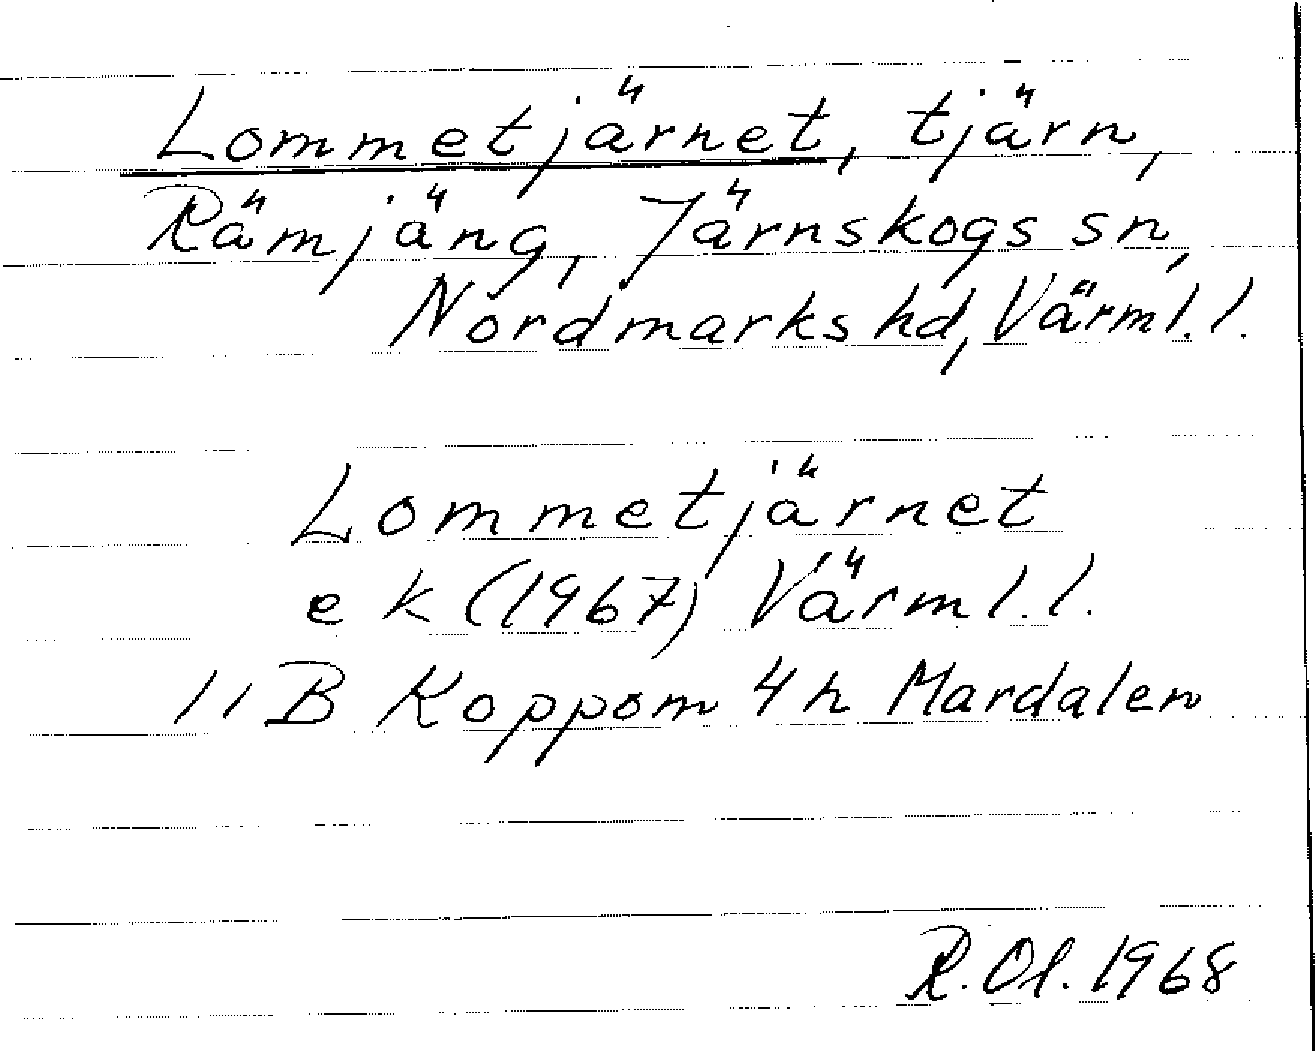 Lommetjärnet, tjärn,
Rämjäng, Järnskogs sn,
Nordmarks hd, Värml. l.
Lommetjärnet
e k (1967) Värml. l.
11 B Koppom 4 h Mardalen
R. Ol. 1968